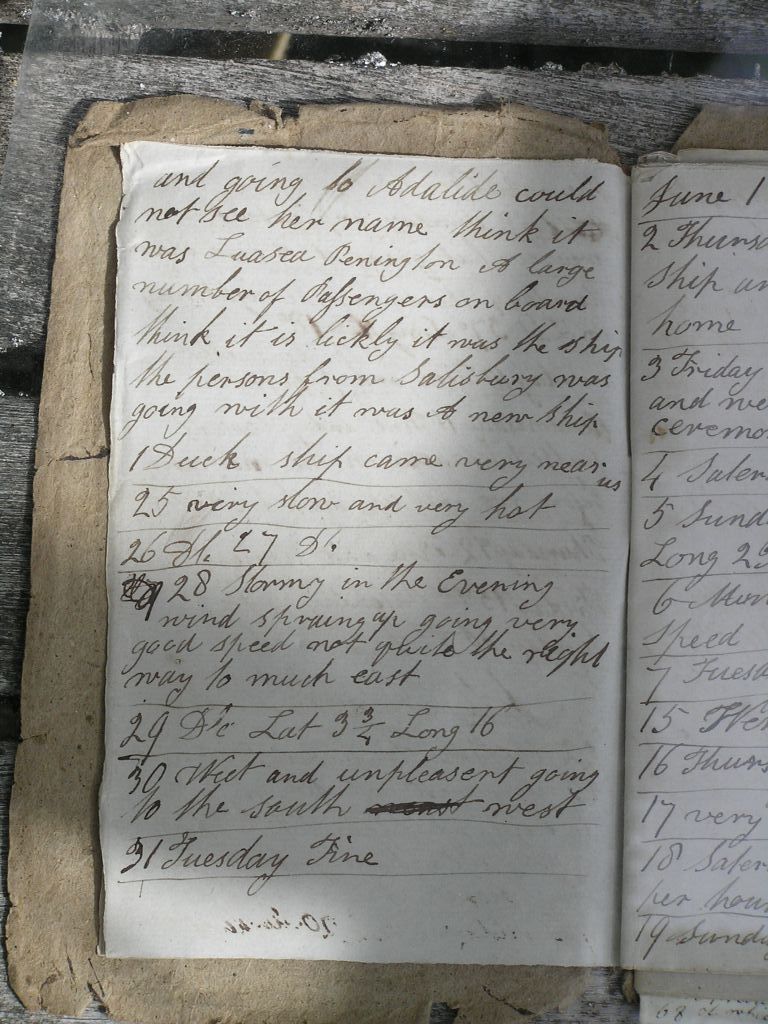 and going to Adalide could
not see her name think it
was Luasea Penington A large
number of Passengers on board
think it is lickly it was the ship
the persons from Salisbury was
going with it was A new ship
1 Duck ship came very near us
25 very slow and very hot
26 Do. 27 Do.
28 Stormy in the Evening
wind spraing up going very
good speed not quite the right
way to much east
29 Do Lat 3 3/4 Long 16
30 Wet and unpleasent going
to the south west
31 Tuesday Fine
June 1
2 Thursd
Ship an
home
3 Friday
and we
ceremo
4 Sater
5 Sund
Long 25
6 Mon
speed
7 Tuesd
15 Wed
16 Thurs
17 very
18 Sater
per hour
19 Sunday